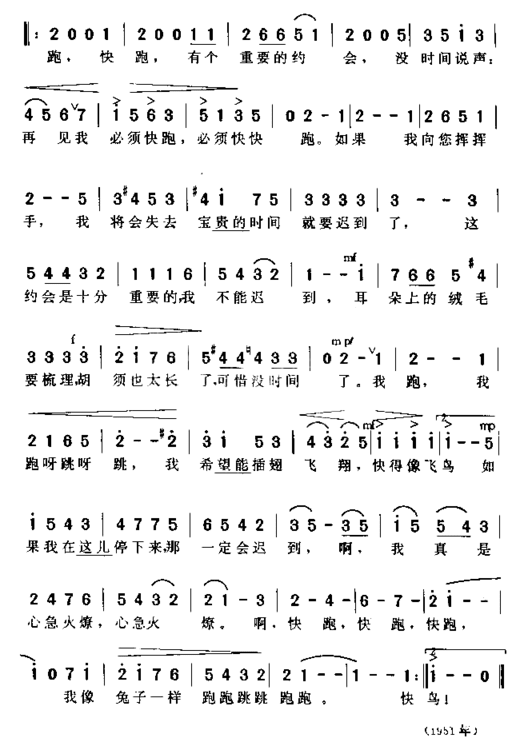 ‖: 2 0 0 1 | 2 0 0 1 1 | 2 6 6 5 1 | 2 0 0 5 | 3 5 i 3 |
跑， 快 跑， 有个 重要的约 会， 没 时间说声：
4 5 6 7 | i 5 6 3 | 5 1 3 5 | 0 2 - 1 | 2 - - 1 | 2 6 5 1 |
再 见我 必须快跑，必须快快 跑。如果 我向您挥挥
2 - - 5 | 3 #4 5 3 | #4 i 7 5 | 3 3 3 3 | 3 - - 3 |
手， 我 将会失去 宝贵的时间 就要迟到 了， 这
5 4 4 3 2 | 1 1 1 6 | 5 4 3 2 | 1 - - i | 7 6 6 5 #4 |
mf
约会是十分 重要的,我 不能迟 到，耳 朵上的绒毛
f
3 3 3 3 | 2 i 7 6 | 5 #4 4 #4 3 3 | 0 2 - 1 | 2 - - 1 |
mp
要梳理,胡 须也太长 了,可惜没时间 了。我 跑， 我
2 1 6 5 | 2 - - #2 | 3 i 5 3 | 4 3 2 5 | i i i i | i - - 5 |
mf 2. mp
跑呀跳呀 跳， 我 希望能插翅 飞 翔，快得像飞鸟 如
i 5 4 3 | 4 7 7 5 | 6 5 4 2 | 3 5 - 3 5 | i 5 5 4 3 |
果我在这儿停下来,那 一定会迟 到， 啊， 我 真是
2 4 7 6 | 5 4 3 2 | 2 1 - 3 | 2 - 4 - | 6 - 7 - | 2 i - - |
心急火燎，心急火 燎。 啊，快 跑，快 跑，快跑，
i 0 7 i | 2 i 7 6 | 5 4 3 2 | 2 1 - - | 1 - - 1 :‖ i - - 0 ‖
我像 兔子一样 跑跑跳跳 跑跑 。 快 鸟！
(1951年)